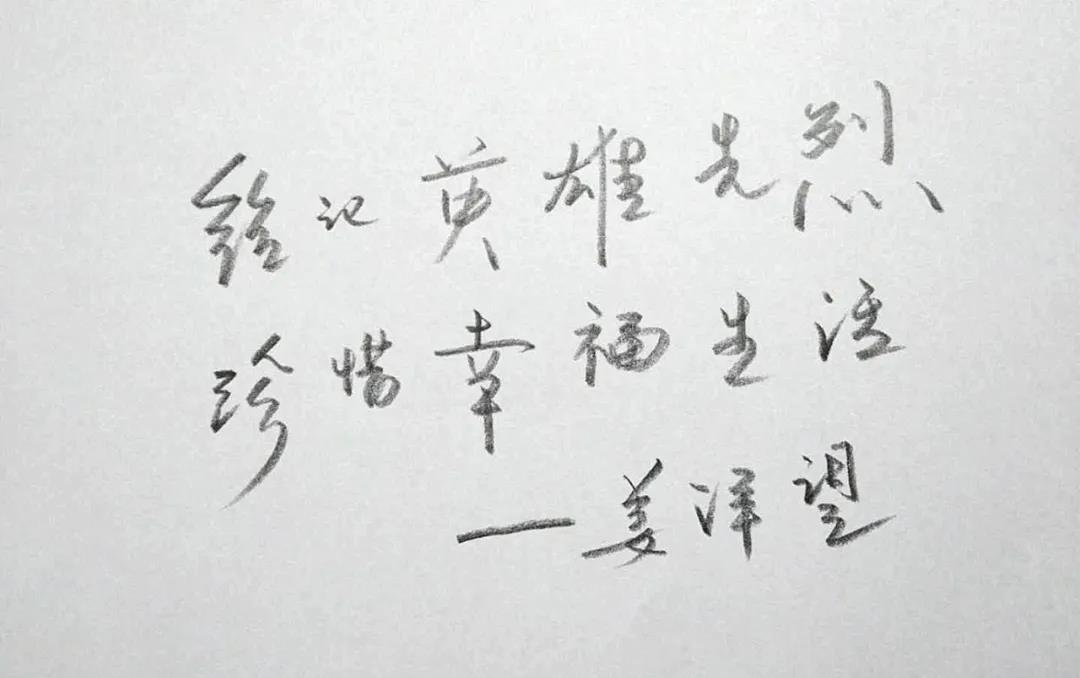 铭记英雄先烈
珍惜幸福生活
—姜洋望